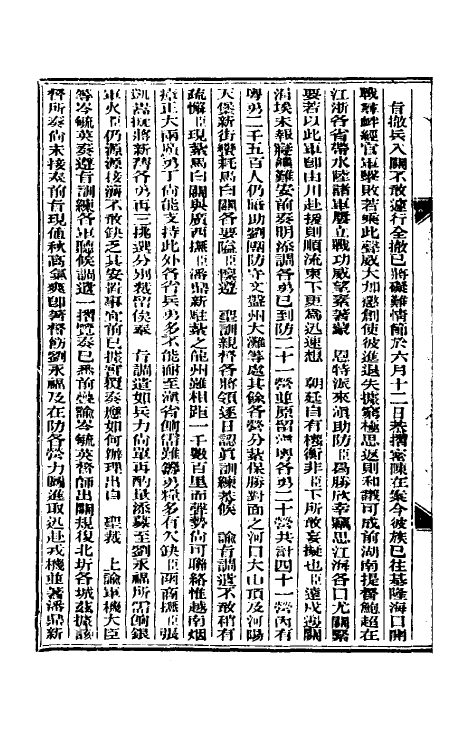 旨撤兵入關不敢遽行全撤已將礙難情節於六月十二日恭摺密陳在案今彼族已往基隆海口開
戰毒衅經官軍擊敗若乘此聲威大加懲創使彼進退失據窮極思返則和議可成前湖南提督鮑超在
江浙各省帶水陸諸軍屢立戰功威望素著蒙　恩特派來滇助防臣爲勝欣幸竊思江海各口尤關緊
要若以此軍卽由川赴援則順流東下更爲迅速想　朝廷自有權衡非臣下所敢妄擬也臣遠戍邊關
涓埃未報寢饋難安前奏明添調各勇已到防二十一營並原留滇粵各勇二十營共計四十一營內有
粵勇二千五百人仍暗助劉團防守文盤州大灘等處其餘各營分紮保勝對面之河口大山頂及河陽
天保新街蠻耗馬白關各要隘臣懔遵　聖訓親督各將領逐日認眞訓練恭候　諭旨調遣不敢稍有
疏懈臣現紮馬白關與廣西撫臣潘鼎新駐紮之龍州雖相距一千數百里而聲勢尙可聯絡惟越南烟
瘴正大兩廣勇丁尙能支持此外各省兵勇多不能耐至滇省餉需雖籌勇糧多有欠缺臣商撫臣張
凱嵩擬將新舊各勇再三挑選分別裁留俟奉　旨調遣如兵力尙單再酌量添募至劉永福所需餉銀
軍火臣仍源源接濟不敢缺乏其安置事宜前已據實覆奏應如何辦理出自　聖裁　上諭軍機大臣
等岑毓英奏遵旨訓練各軍聽候調遣一摺覽奏已悉前疊諭岑毓英督師出關規復北圻各城茲據該
督所奏尙未接奉前旨現値秋高氣爽卽著督飭劉永福及在防各營力圖進取迅赴戎機並著潘鼎新